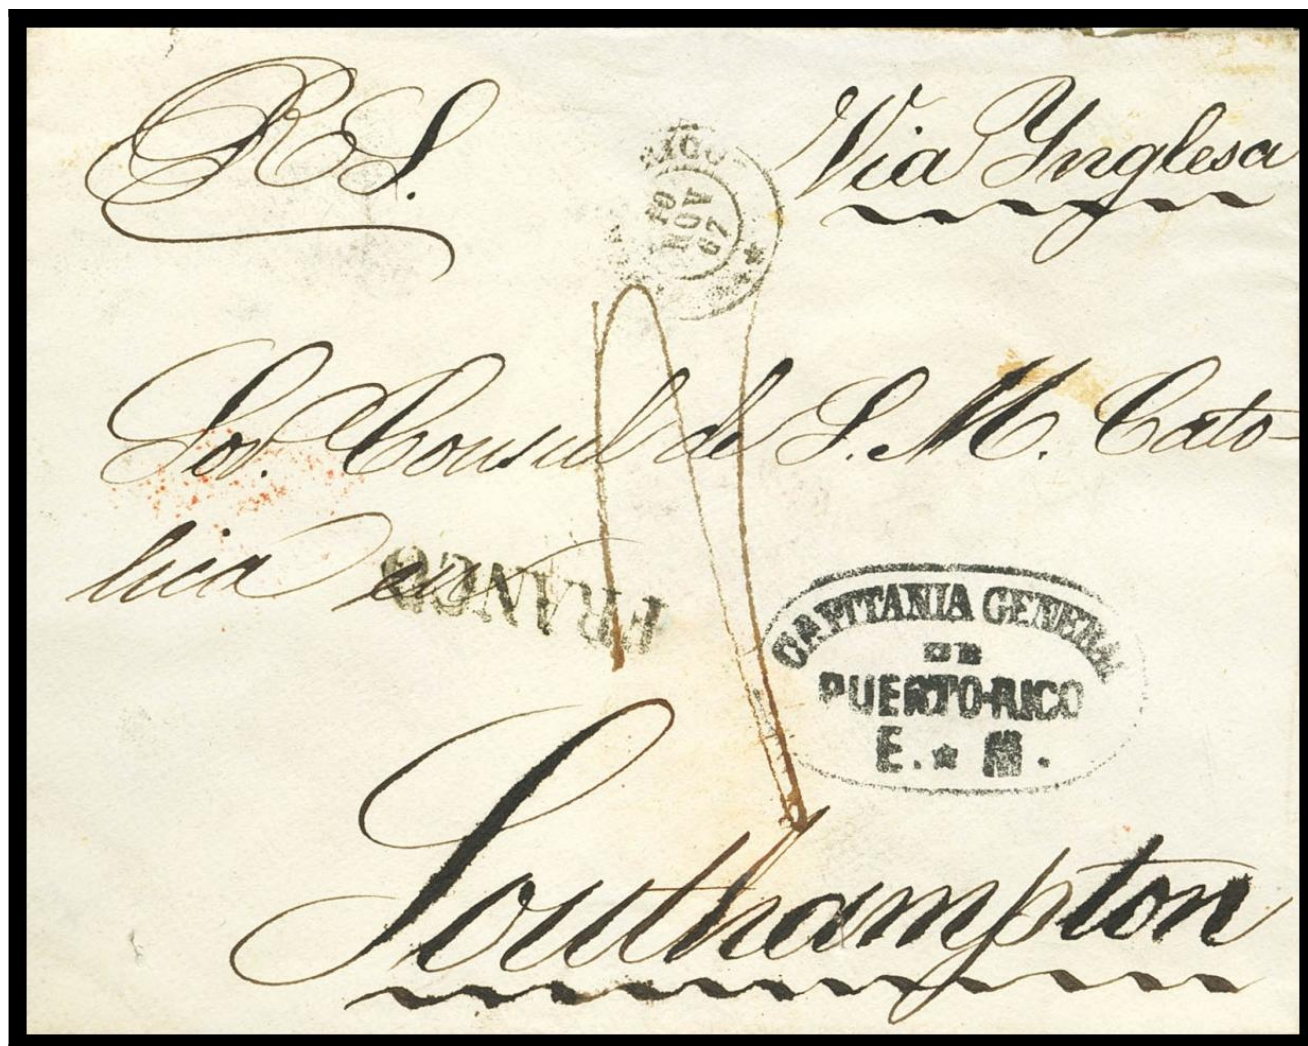 RS.
Via Ynglesa
RICO
19
NOV
67
Sor. Consul de S. M. Cato-
lica en
FRANCO
CAPITANIA GENERAL
DE
PUERTO-RICO
E. * M.
Southampton